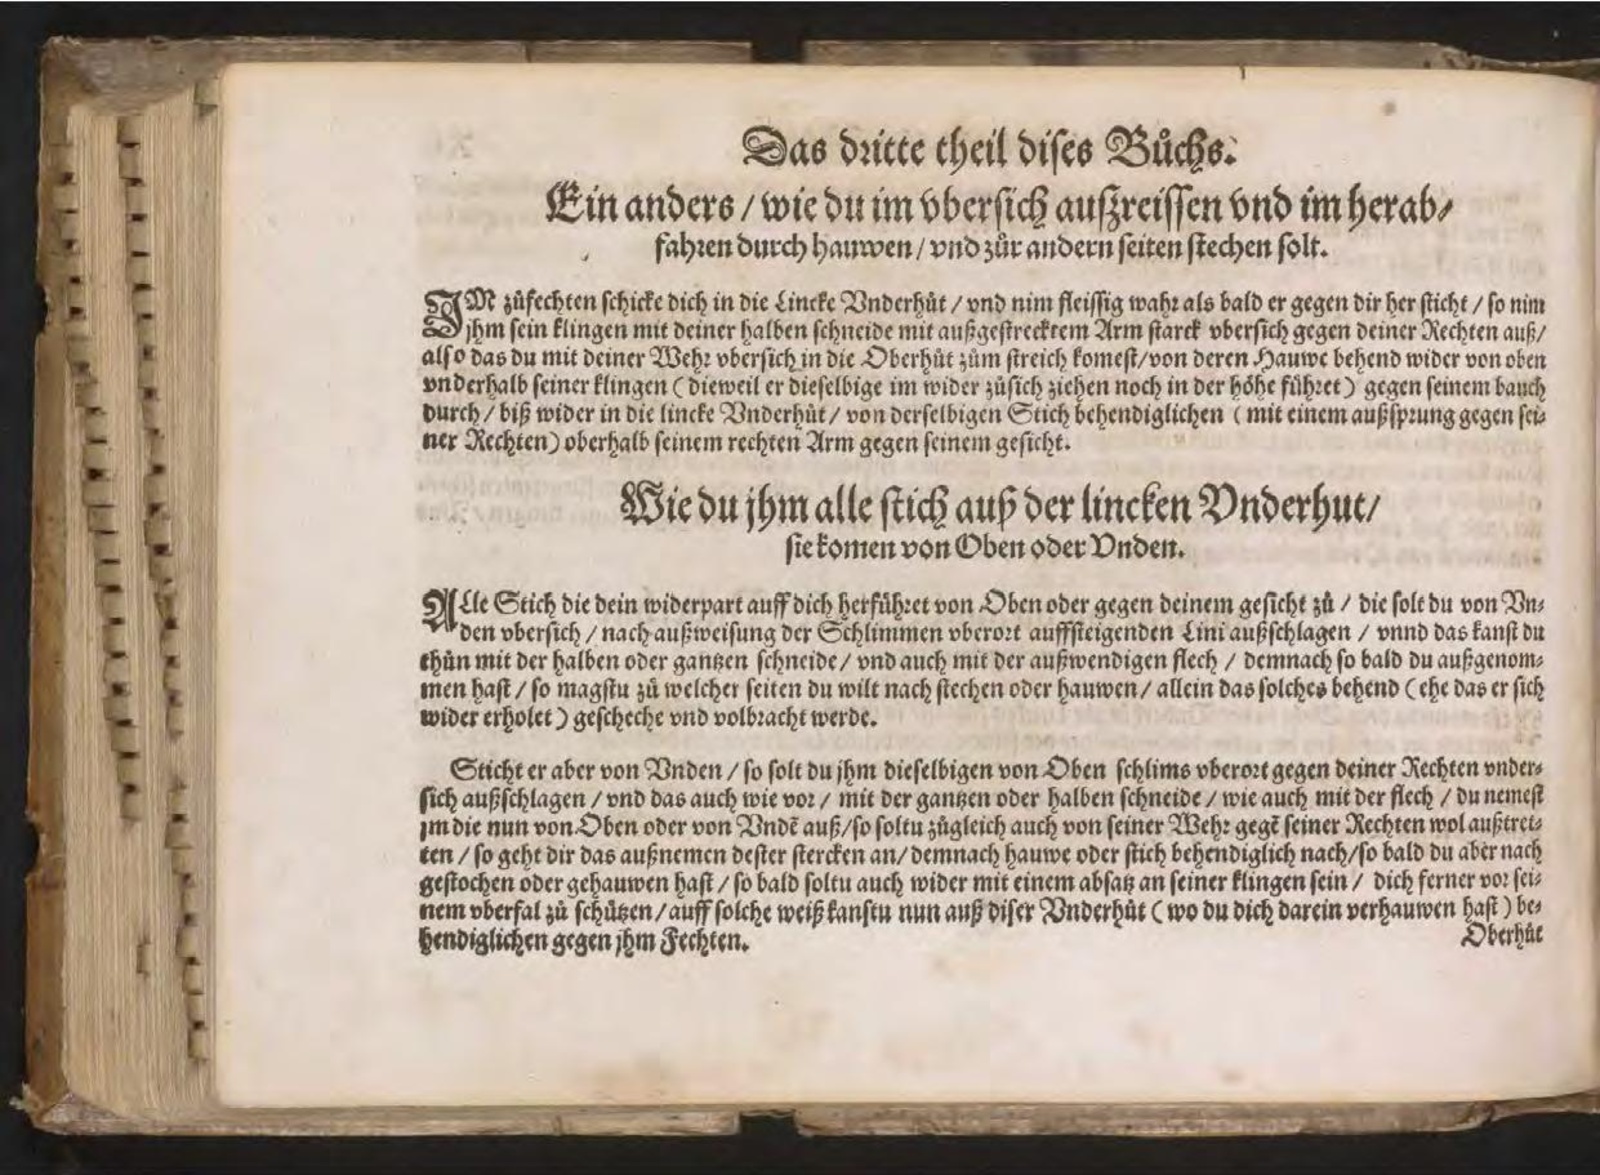 Das dritte theil dises Bůchs.
Ein anders / wie du im vbersich außreissen vnd im herab⸗
fahren durch hauwen / vnd zůr andern seiten stechen solt.
IM zůfechten schicke dich in die Lincke Vnderhůt / vnd nim fleissig wahr als bald er gegen dir her sticht / so nim
jhm sein klingen mit deiner halben schneide mit außgestrecktem Arm starck vbersich gegen deiner Rechten auß/
also das du mit deiner Wehr vbersich in die Oberhůt zům streich komest/von deren Hauwe behend wider von oben
vnderhalb seiner klingen (dieweil er dieselbige im wider zůsich ziehen noch in der höhe führet) gegen seinem bauch
durch / biß wider in die lincke Vnderhůt / von derselbigen Stich behendiglichen (mit einem außsprung gegen sei⸗
ner Rechten) oberhalb seinem rechten Arm gegen seinem gesicht.
Wie du jhm alle stich auß der lincken Vnderhut/
sie komen von Oben oder Vnden.
ALle Stich die dein widerpart auff dich herführet von Oben oder gegen deinem gesicht zů / die solt du von Vn⸗
den vbersich / nach außweisung der Schlimmen vberort auffsteigenden Lini außschlagen / vnnd das kanst du
thůn mit der halben oder gantzen schneide / vnd auch mit der außwendigen flech / demnach so bald du außgenom⸗
men hast / so magstu zů welcher seiten du wilt nach stechen oder hauwen / allein das solches behend (ehe das er sich
wider erholet) gescheche vnd volbracht werde.
Sticht er aber von Vnden / so solt du jhm dieselbigen von Oben schlims vberort gegen deiner Rechten vnder⸗
sich außschlagen / vnd das auch wie vor / mit der gantzen oder halben schneide / wie auch mit der flech / du nemest
jm die nun von Oben oder von Vndē auß/so soltu zůgleich auch von seiner Wehr gegē seiner Rechten wol außtret⸗
ten / so geht dir das außnemen dester stercken an/ demnach hauwe oder stich behendiglich nach/so bald du aber nach
gestochen oder gehauwen hast / so bald soltu auch wider mit einem absatz an seiner klingen sein / dich ferner vor sei⸗
nem vberfal zů schützen / auff solche weiß kanstu nun auß diser Vnderhůt (wo du dich darein verhauwen hast) be⸗
hendiglichen gegen jhm Fechten.
Oberhůt